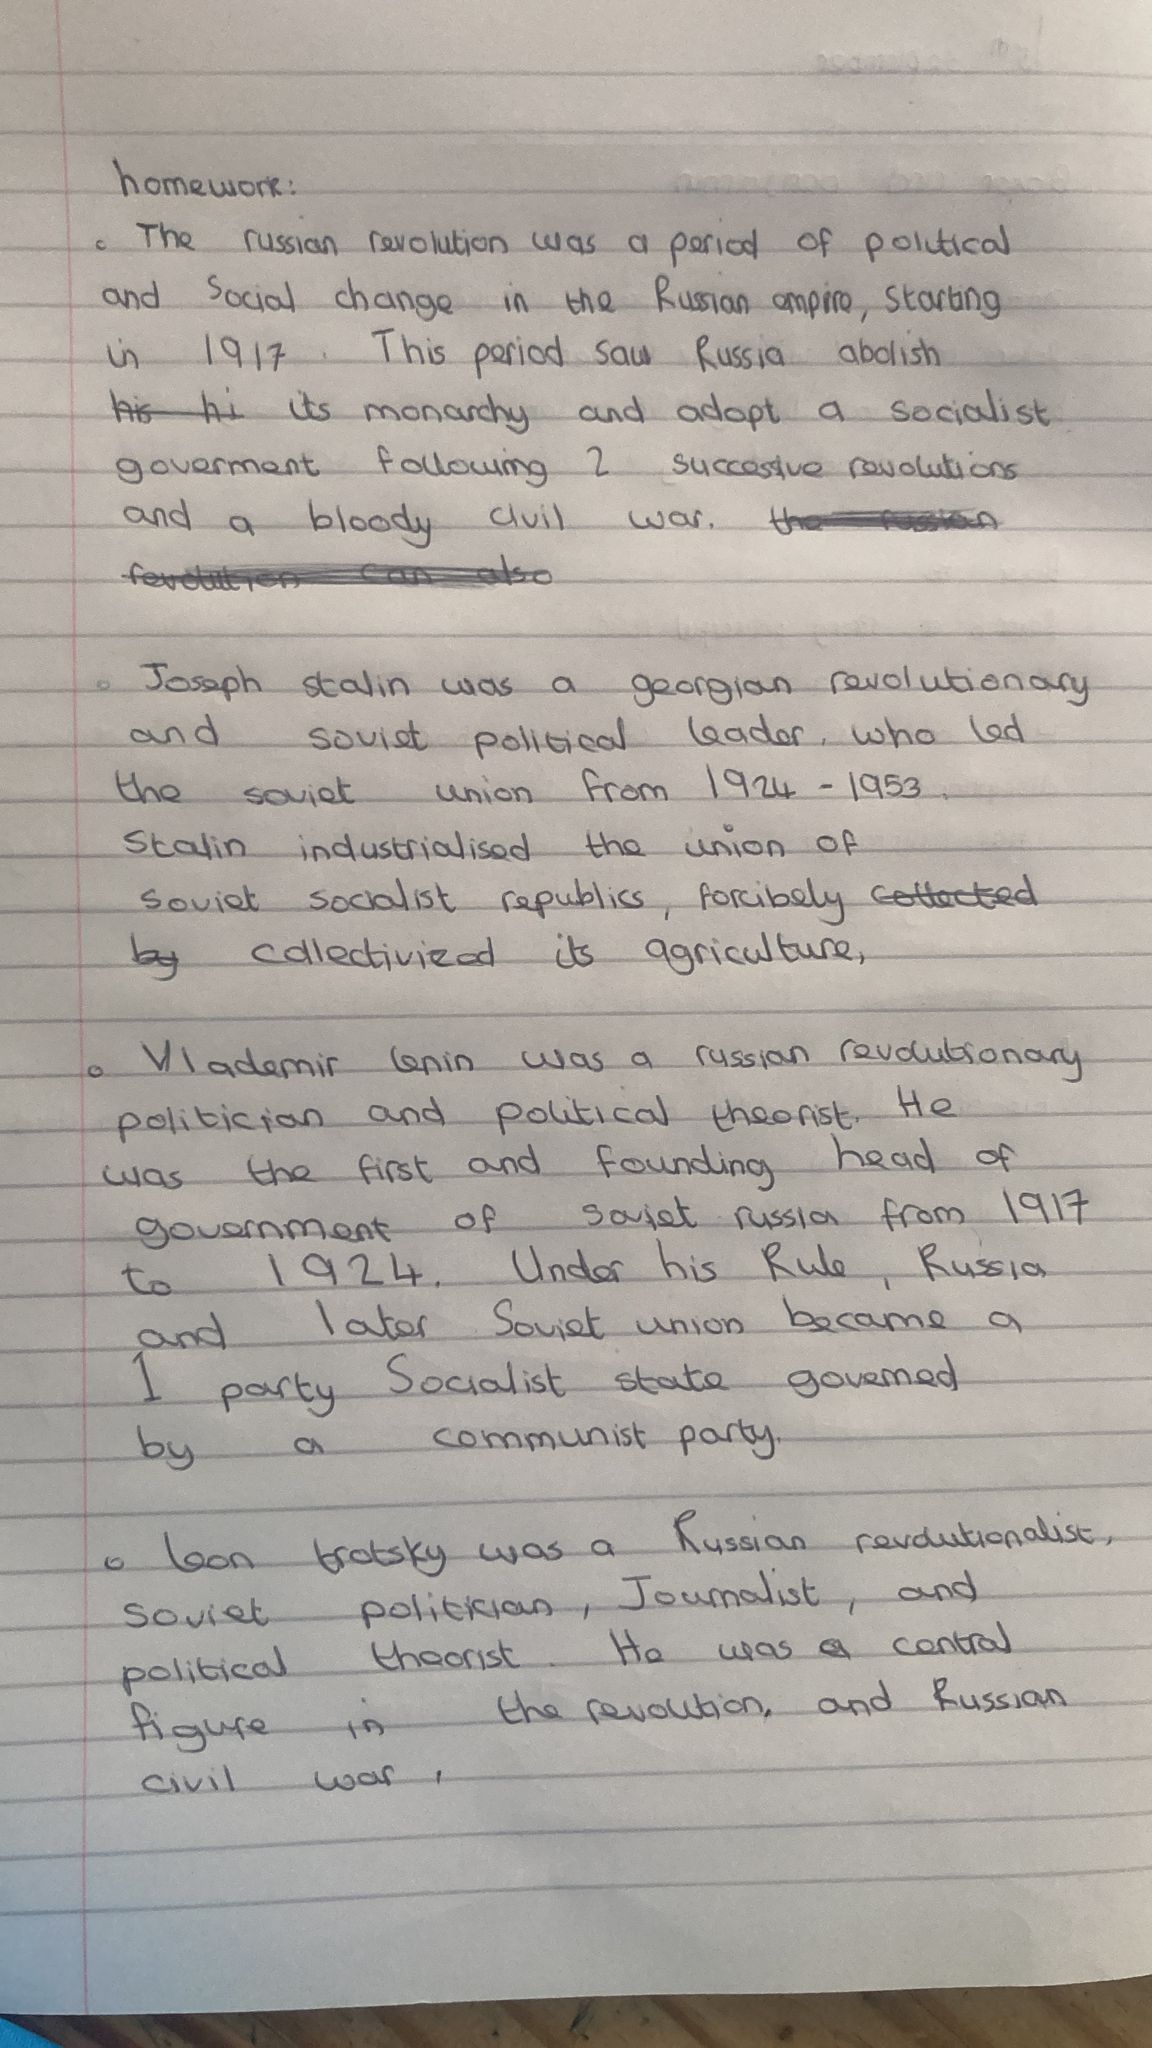 homework:
• The russian revolution was a period of political
and Social change in the Russian empire, starting
in 1917. This period saw Russia abolish
his hi its monarchy and adopt a socialist
goverment following 2 succesive revolutions
and a bloody civil war. the russian
revolution can also
• Joseph stalin was a georgian revolutionary
and soviet political leader. who led
the soviet union from 1924 - 1953.
Stalin industrialised the union of
soviet socialist republics, forcibely collected
by collectivized its agriculture,
• Vlademir lenin was a russian revolutionary
politician and political theorist. He
was the first and founding head of
government of soviet russia from 1917
to 1924. Under his Rule, Russia
and later Soviet union became a
1 party Socialist state governed
by a communist party.
• leon trotsky was a Russian revolutionalist,
soviet politician, Journalist, and
political theorist. He was a central
figure in the revoution, and Russian
civil war,